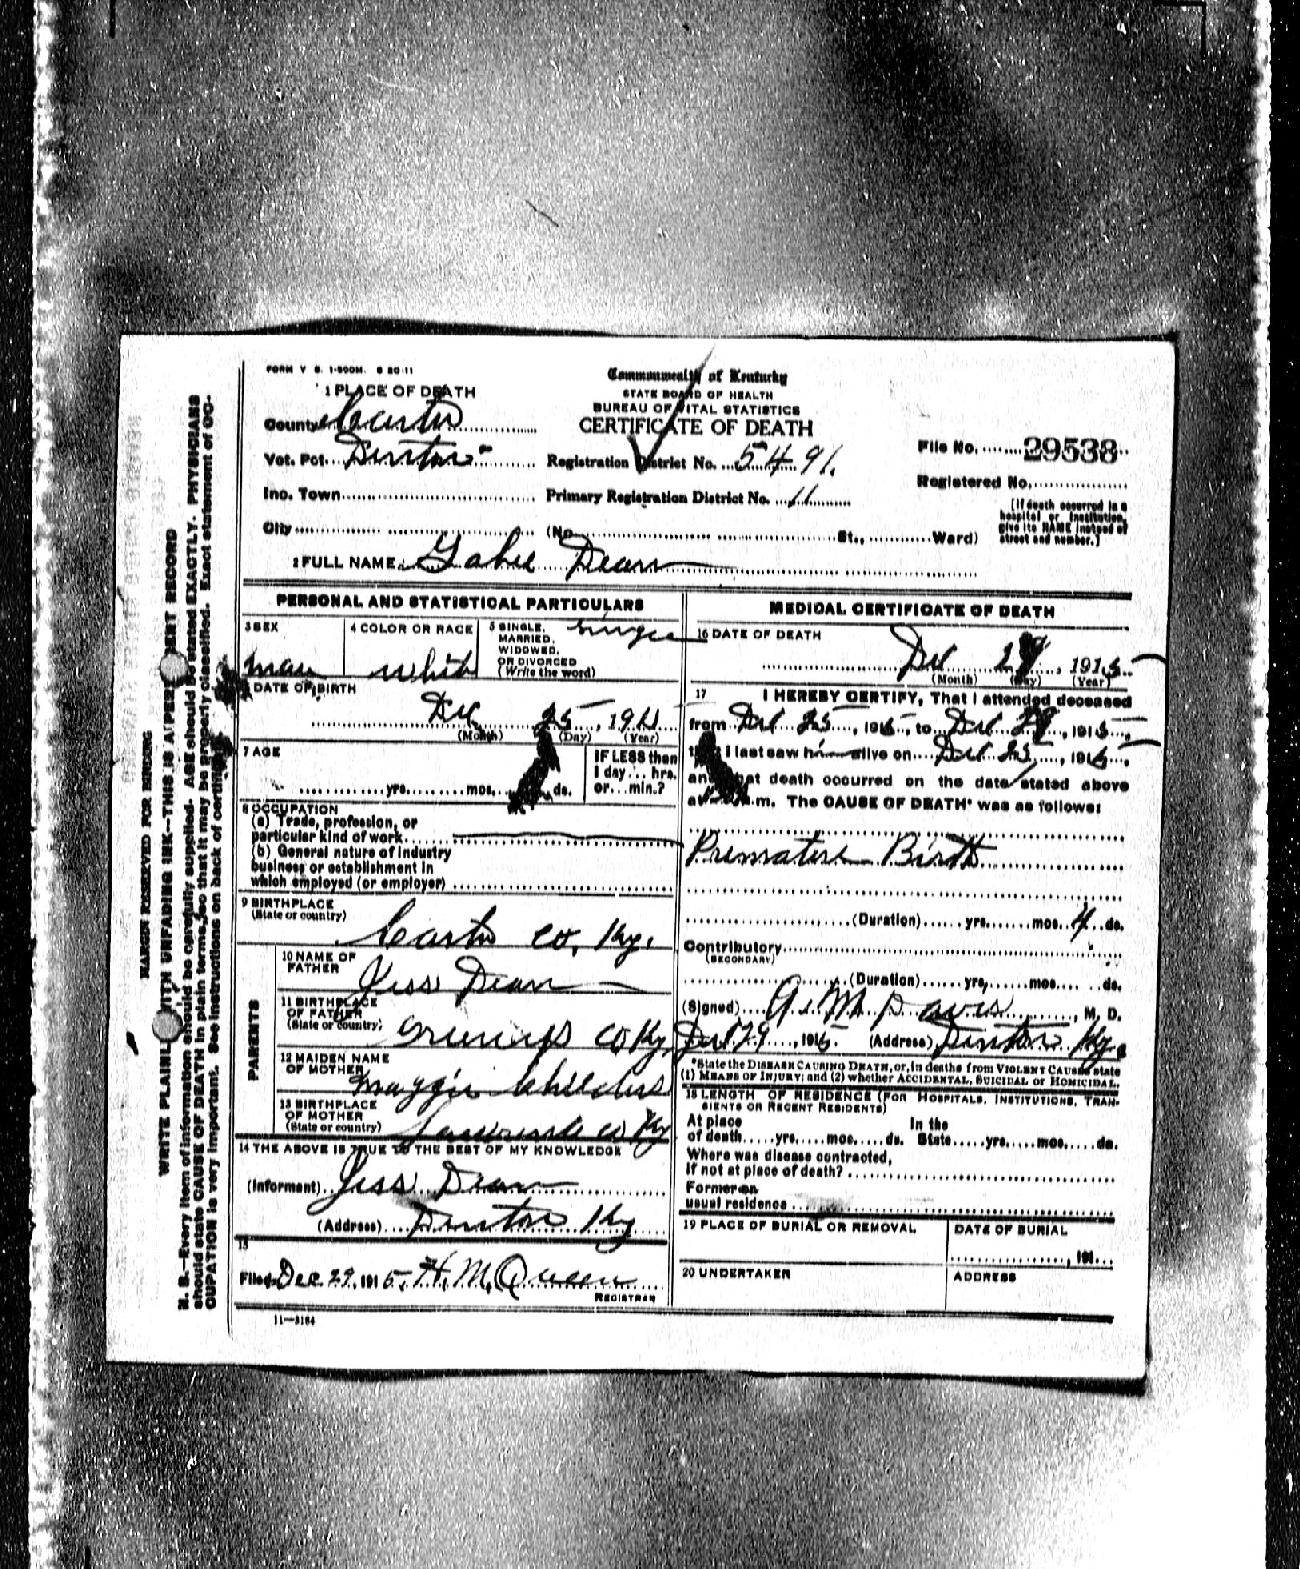 FORM V. S. 1-500M. 8 20-11
1 PLACE OF DEATH
County Carter
Vot. Pct. Denton
Inc. Town
City
Commonwealth of Kentucky
STATE BOARD OF HEALTH
BUREAU OF VITAL STATISTICS
CERTIFICATE OF DEATH
Registration District No. 5491.
Primary Registration District No. 11
(No. St., Ward)
File No. 29538
Registered No.
[If death occurred in a
hospital or institution,
give its NAME instead of
street and number.]
2 FULL NAME Dean
PERSONAL AND STATISTICAL PARTICULARS
3 SEX
4 COLOR OR RACE
5 SINGLE,
MARRIED,
WIDOWED,
OR DIVORCED
(Write the word)
Single
white
6 DATE OF BIRTH
Dec 25, 191
(Month) (Day) (Year)
7 AGE
yrs. mos. ds.
IF LESS than
1 day... hrs.
or... min.?
8 OCCUPATION
(a) Trade, profession, or
particular kind of work
(b) General nature of industry
business or establishment in
which employed (or employer)
9 BIRTHPLACE
(State or country)
Carter Co, Ky.
PARENTS
10 NAME OF
FATHER
Jess Dean
11 BIRTHPLACE
OF FATHER
(State or country)
Greenup Co Ky
12 MAIDEN NAME
OF MOTHER
Maggie
13 BIRTHPLACE
OF MOTHER
(State or country)
Lawrence Co Ky
14 THE ABOVE IS TRUE TO THE BEST OF MY KNOWLEDGE
(Informant) Jess Dean
(Address) Denton Ky
15
Filed Dec 29, 1915, H. M. Queen
REGISTRAR
11—3184
MEDICAL CERTIFICATE OF DEATH
16 DATE OF DEATH
Dec , 1915
(Month) (Day) (Year)
17
I HEREBY CERTIFY, That I attended deceased
from Dec 25, 1915, to Dec , 1915,
that I last saw him alive on Dec 25, 1915,
and that death occurred on the date stated above
at m. The CAUSE OF DEATH* was as follows:
Premature Birth
(Duration) yrs. mos. 4 ds.
Contributory
(SECONDARY)
(Duration) yrs. mos. ds.
(Signed) Davis, M. D.
29, 191 (Address) Denton Ky.
*State the DISEASE CAUSING DEATH, or, in deaths from VIOLENT CAUSES, state
(1) MEANS OF INJURY; and (2) whether ACCIDENTAL, SUICIDAL or HOMICIDAL.
18 LENGTH OF RESIDENCE (FOR HOSPITALS, INSTITUTIONS, TRAN-
SIENTS OR RECENT RESIDENTS)
At place In the
of death yrs. mos. ds. State yrs. mos. ds.
Where was disease contracted,
If not at place of death?
Former or
usual residence
19 PLACE OF BURIAL OR REMOVAL
DATE OF BURIAL
, 191
20 UNDERTAKER
ADDRESS
MARGIN RESERVED FOR BINDING
WRITE PLAINLY WITH UNFADING INK—THIS IS A PERMANENT RECORD
N. B.—Every item of information should be carefully supplied. AGE should be stated EXACTLY. PHYSICIANS
should state CAUSE OF DEATH in plain terms, so that it may be properly classified. Exact statement of OC-
CUPATION is very important. See instructions on back of certificate